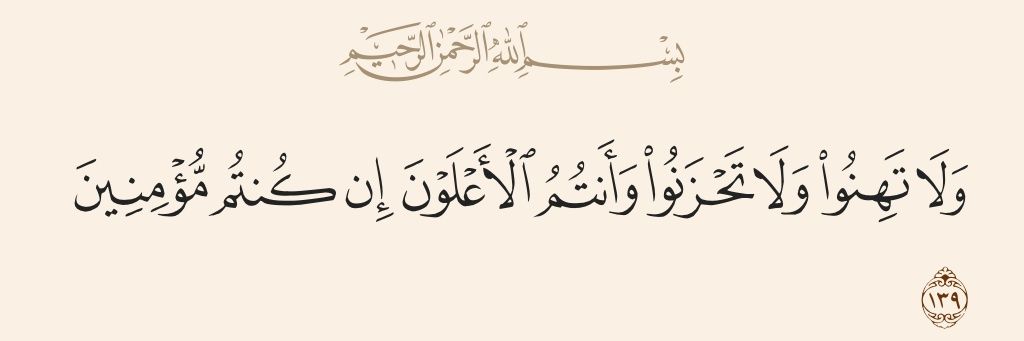 بِسْمِ ٱللَّهِ ٱلرَّحْمَٰنِ ٱلرَّحِيمِ
وَلَا تَهِنُوا۟ وَلَا تَحْزَنُوا۟ وَأَنتُمُ ٱلْأَعْلَوْنَ إِن كُنتُم مُّؤْمِنِينَ
١٣٩